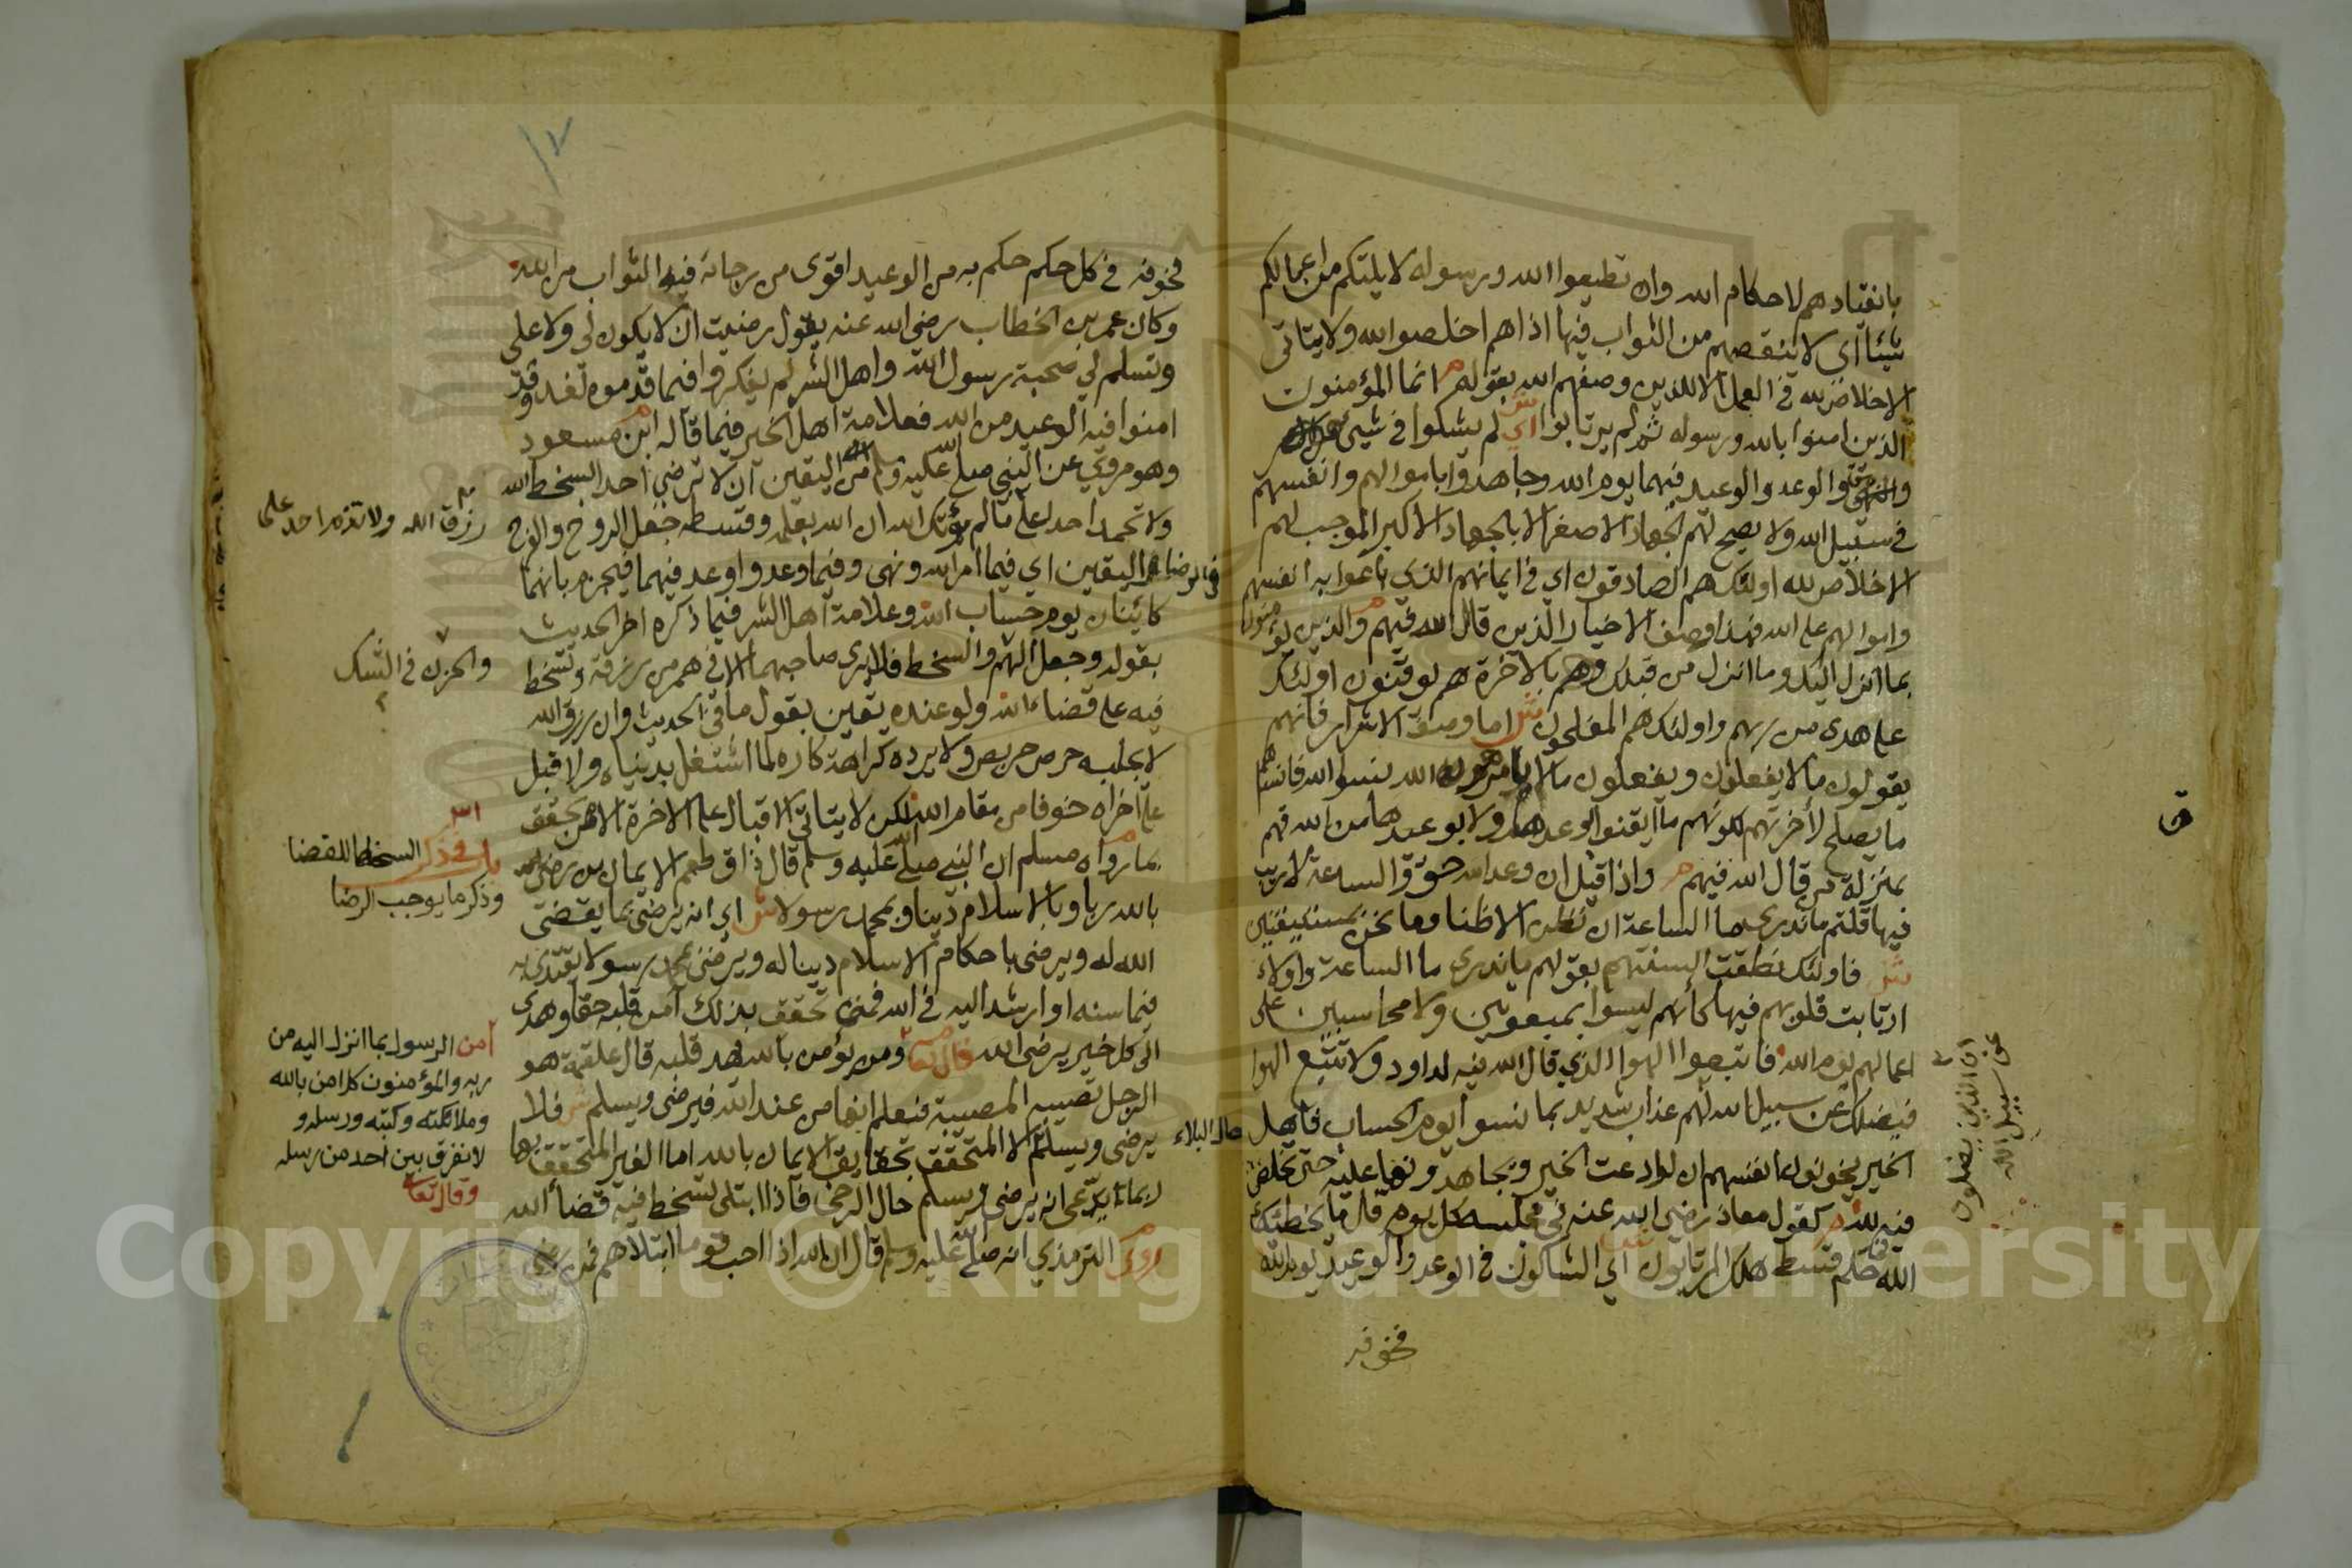 بانقيادهم لاحكام الله وان تطيعوا الله ورسوله لا يلتكم من اعمالكم
شيئا اي لا ينقصهم من الثواب فيها اذا هم اخلصوا لله ولا يتاتى
الاخلاص لله في العمل الا للذين وصفهم الله بقوله انما المؤمنون
الذين امنوا بالله ورسوله ثم لم يرتابوا اي لم يشكوا في شيء
الوعد والوعيد فيهما يوم الله وجاهدوا باموالهم وانفسهم
في سبيل الله ولا يصح لهم الجهاد الاصغر الا بالجهاد الاكبر الموجب لهم
الاخلاص لله اولئك هم الصادقون اي في ايمانهم الذي باعوا به انفسهم
واموالهم على الله فهذا وصف الاخيار الذين قال الله فيهم والذين يؤمنون
بما انزل اليك وما انزل من قبلك وهم بالآخرة هم يوقنون اولئك
على هدى من ربهم واولئك هم المفلحون ش اما وصف الاشرار فانهم
يقولون ما لا يفعلون ويفعلون ما لا يامرهم الله نسوا الله فانساهم
ما يصلح لأخرتهم لكونهم ما ايقنوا بوعدها ولا بوعيدها من الله فهم
بمنزلة من قال الله فيهم م واذا قيل ان وعد الله حق والساعة لا ريب
فيها قلتم ما ندري ما الساعة ان نظن الا ظنا وما نحن بمستيقنين
ش فاولئك نطقت السنتهم بقولهم ما ندري ما الساعة واولاء
ارتابت قلوبهم فيها كأنهم ليسوا بمبعوثين ولا محاسبين على
اعمالهم يوم الله فاتبعوا الهوا الذي قال الله فيه لداود ولا تتبع الهوا
فيضلك عن سبيل الله لهم عذاب شديد بما نسوا يوم الحساب فاهل
ان الذين يضلون
عن سبيل الله
الخير يخونوا انفسهم ان لو ادعت الخير وتجاهد ونها عليه حتى تخلص
فيه لله م كقول معاذ رضي الله عنه في مجلسه كل يوم قال ما يخطئك
الله حكم قسط هلك المرتابون اي الشاكون في الوعد والوعيد يوم الله
فخوفه
ق
١٧
فخوفه في كل حكم حكم به من الوعيد اقوى من رجائه فيه الثواب من الله
وكان عمر بن الخطاب رضي الله عنه يقول رضيت ان لا يكون لي ولا علي
وتسلم لي صحبة رسول الله واهل الشر لم يفكروا فيما قدموه لغد وقد
امنوا فيه الوعيد من الله فعلامة اهل الخير فيما قاله ابن مسعود
وهو مروي عن النبي صلى الله عليه وسلم من اليقين ان لا ترضي احدا بسخط الله
ولا تحمد احدا على
رزق الله ولا تذم احد على
ما لم يؤتك الله ان الله بعلمه وقسطه جعل الروح والفرح
في الرضا واليقين اي فيما امر الله ونهى وفيما وعد واوعد فيهما فيجزم بانهما
كائنان يوم حساب الله وعلامة اهل الشر فيما ذكره اخر الحديث
بقوله وجعل الهم
والحزن في الشك
والسخط فلا يرى صاحبهما الا في هم من رزقه وتسخط
فيه على قضاء الله ولو عنده يقين بقول ما في الحديث وان رزق الله
لا يجلبه حرص حريص ولا يرده كراهة كاره لما اشتغل بدنياه ولاقبل
على اخراه خوفا من مقام الله لكن لا يتاتي الاقبال على الاخرة الا من تحقق
باب في ذكر السخط للقضا
وذكر ما يوجب الرضا
ما رواه مسلم ان النبي صلى الله عليه وسلم قال ذاق طعم الايمان من رضي
بالله ربا وبالاسلام دينا وبمحمد رسولا ش اي انه يرضى بما يقضي
الله له ويرضى باحكام الاسلام دينا له ويرضى بمحمد رسولا يقتدي به
فيما سنه او ارشد اليه في الله فمن تحقق بذلك آمن قلبه حقا وهدي
الى كل خير يرضي الله قال تعالى
آمن الرسول بما انزل اليه من
ربه والمؤمنون كل امن بالله
وملائكته وكتبه ورسله و
لا نفرق بين احد من رسله
وقال تعالى
ومن يؤمن بالله يهد قلبه قال علقمة هو
الرجل تصيبه المصيبة فيعلم انها من عند الله فيرضى ويسلم ش فلا
يرضى ويسلم
حال البلاء
الا المتحقق بحقايق الايمان بالله اما الغير المتحقق بها
ربما يدعى انه يرضى ويسلم حال الرخى فاذا ابتلى تسخط فيه قضاء الله
روى الترمذي انه صلى الله عليه وسلم قال ان الله اذا احب قوما ابتلاهم فمن رضي
Copyright © King Saud University